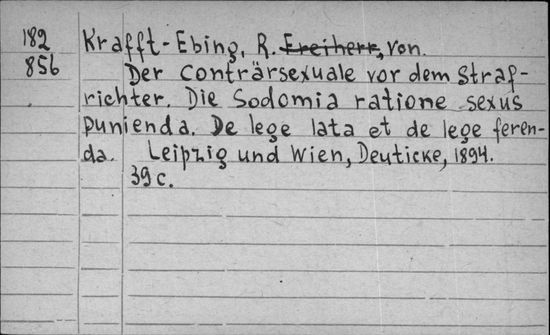 182 Krafft-Ebing, R. Freiherr, von.
856 Der Conträrsexuale vor dem Straf-
richter. Die Sodomia ratione sexus
punienda. De lege lata et de lege feren-
da. Leipzig und Wien, Deuticke, 1894.
39 c.